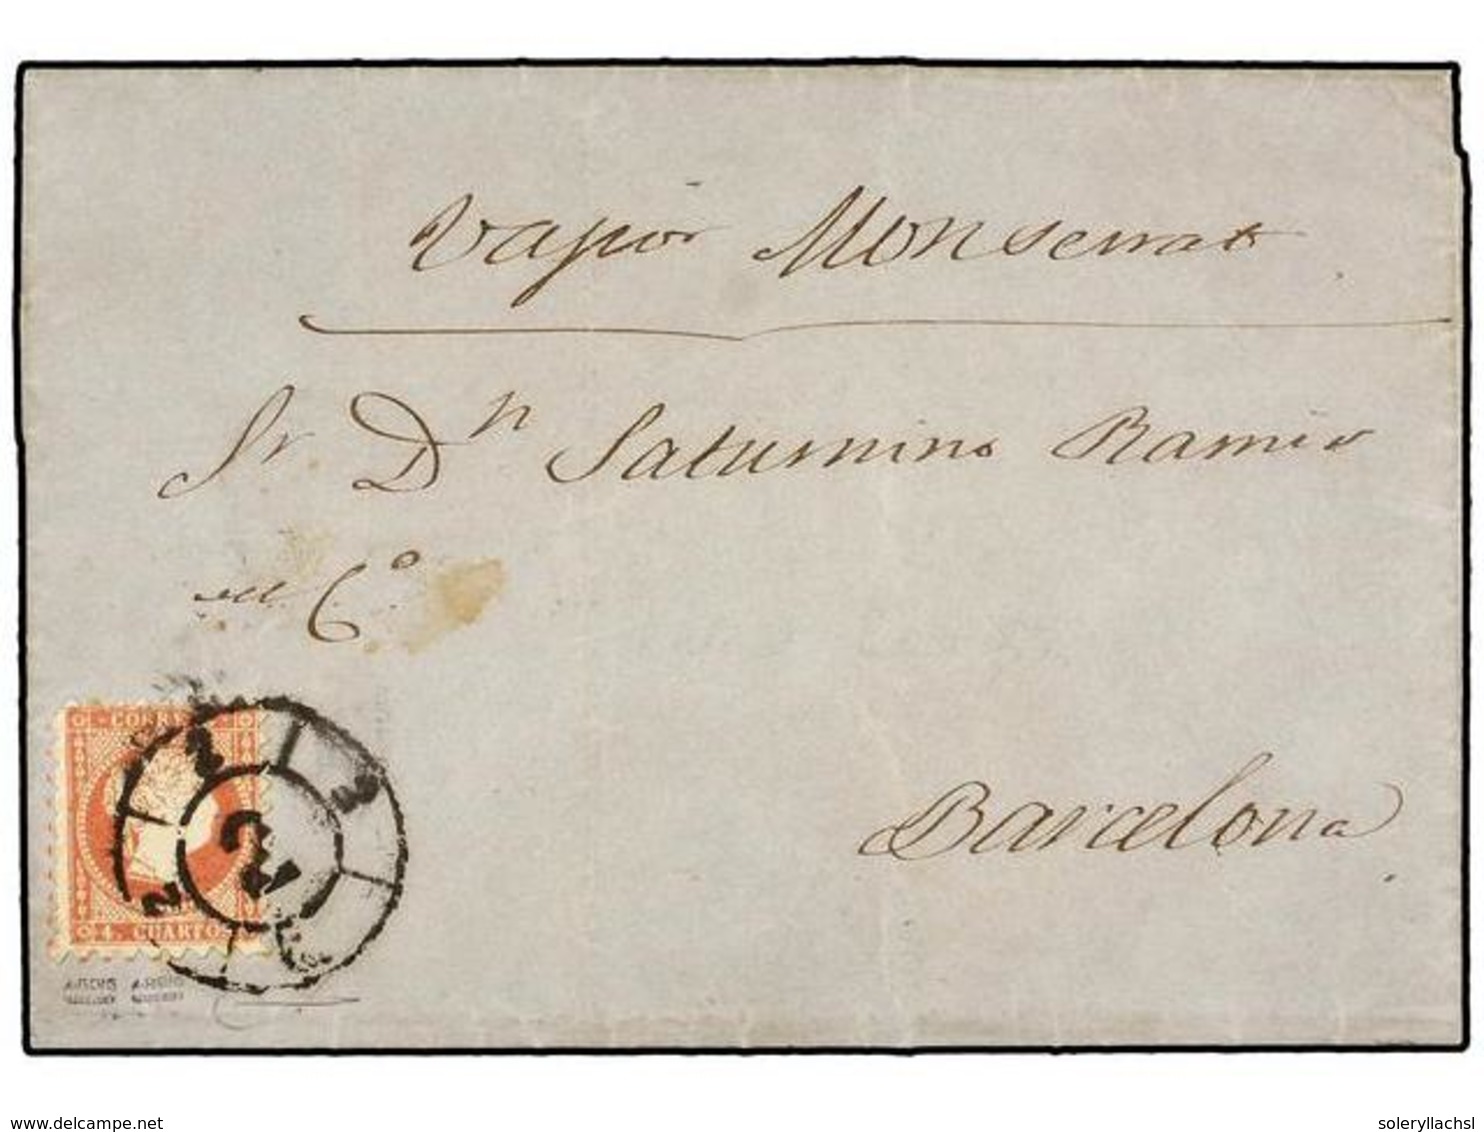 Vapor Monserrat
Sr. Dn Saturnino Ramio
Co
Barcelona
CORREOS
4. CUARTOS
2
2
www.delcampe.net
soleryllachsl